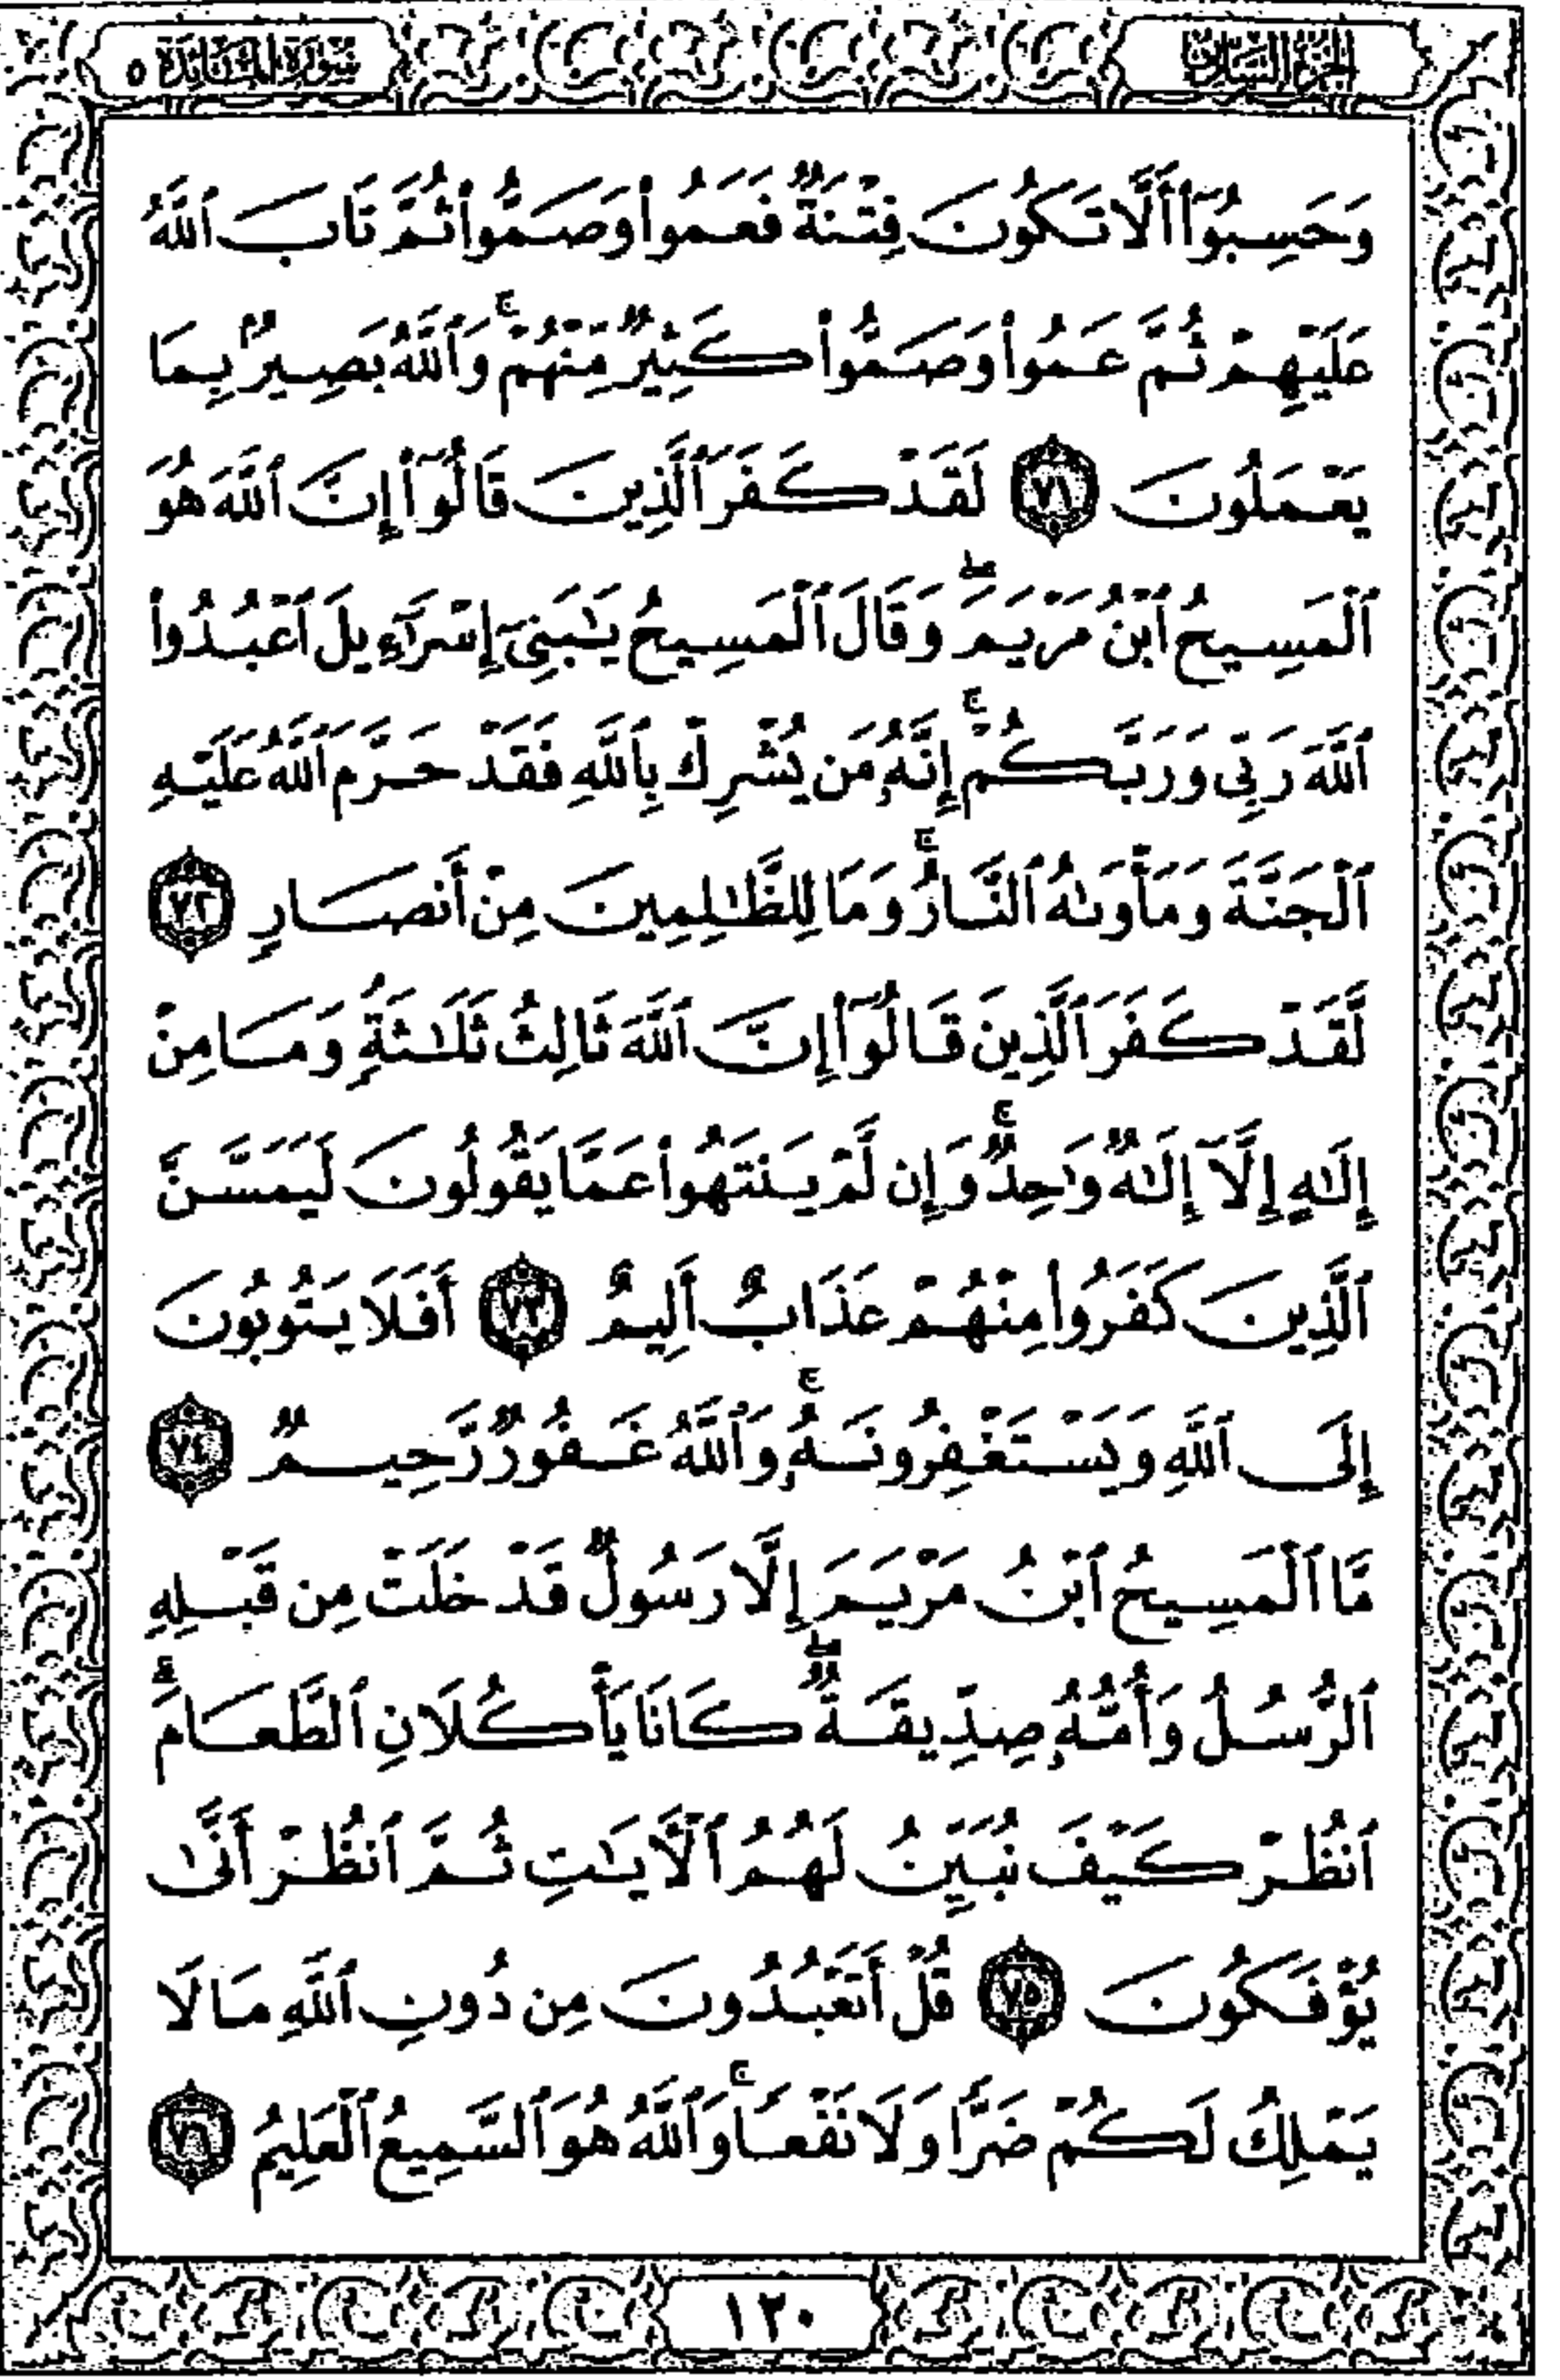 الجزء السادس
سورة المائدة ٥
وَحَسِبُوٓا۟ أَلَّا تَكُونَ فِتْنَةٌ فَعَمُوا۟ وَصَمُّوا۟ ثُمَّ تَابَ ٱللَّهُ
عَلَيْهِمْ ثُمَّ عَمُوا۟ وَصَمُّوا۟ كَثِيرٌ مِّنْهُمْ ۚ وَٱللَّهُ بَصِيرٌۢ بِمَا
يَعْمَلُونَ ٧١ لَقَدْ كَفَرَ ٱلَّذِينَ قَالُوٓا۟ إِنَّ ٱللَّهَ هُوَ
ٱلْمَسِيحُ ٱبْنُ مَرْيَمَ ۖ وَقَالَ ٱلْمَسِيحُ يَـٰبَنِىٓ إِسْرَٰٓءِيلَ ٱعْبُدُوا۟
ٱللَّهَ رَبِّى وَرَبَّكُمْ ۚ إِنَّهُۥ مَن يُشْرِكْ بِٱللَّهِ فَقَدْ حَرَّمَ ٱللَّهُ عَلَيْهِ
ٱلْجَنَّةَ وَمَأْوَىٰهُ ٱلنَّارُ ۚ وَمَا لِلظَّـٰلِمِينَ مِنْ أَنصَارٍ ٧٢
لَّقَدْ كَفَرَ ٱلَّذِينَ قَالُوٓا۟ إِنَّ ٱللَّهَ ثَالِثُ ثَلَـٰثَةٍ ۘ وَمَا مِنْ
إِلَـٰهٍ إِلَّآ إِلَـٰهٌ وَٰحِدٌ ۚ وَإِن لَّمْ يَنتَهُوا۟ عَمَّا يَقُولُونَ لَيَمَسَّنَّ
ٱلَّذِينَ كَفَرُوا۟ مِنْهُمْ عَذَابٌ أَلِيمٌ ٧٣ أَفَلَا يَتُوبُونَ
إِلَى ٱللَّهِ وَيَسْتَغْفِرُونَهُۥ ۚ وَٱللَّهُ غَفُورٌ رَّحِيمٌ ٧٤
مَّا ٱلْمَسِيحُ ٱبْنُ مَرْيَمَ إِلَّا رَسُولٌ قَدْ خَلَتْ مِن قَبْلِهِ
ٱلرُّسُلُ وَأُمُّهُۥ صِدِّيقَةٌ ۖ كَانَا يَأْكُلَانِ ٱلطَّعَامَ ۗ
ٱنظُرْ كَيْفَ نُبَيِّنُ لَهُمُ ٱلْـَٔايَـٰتِ ثُمَّ ٱنظُرْ أَنَّىٰ
يُؤْفَكُونَ ٧٥ قُلْ أَتَعْبُدُونَ مِن دُونِ ٱللَّهِ مَا لَا
يَمْلِكُ لَكُمْ ضَرًّا وَلَا نَفْعًا ۚ وَٱللَّهُ هُوَ ٱلسَّمِيعُ ٱلْعَلِيمُ ٧٦
١٢٠